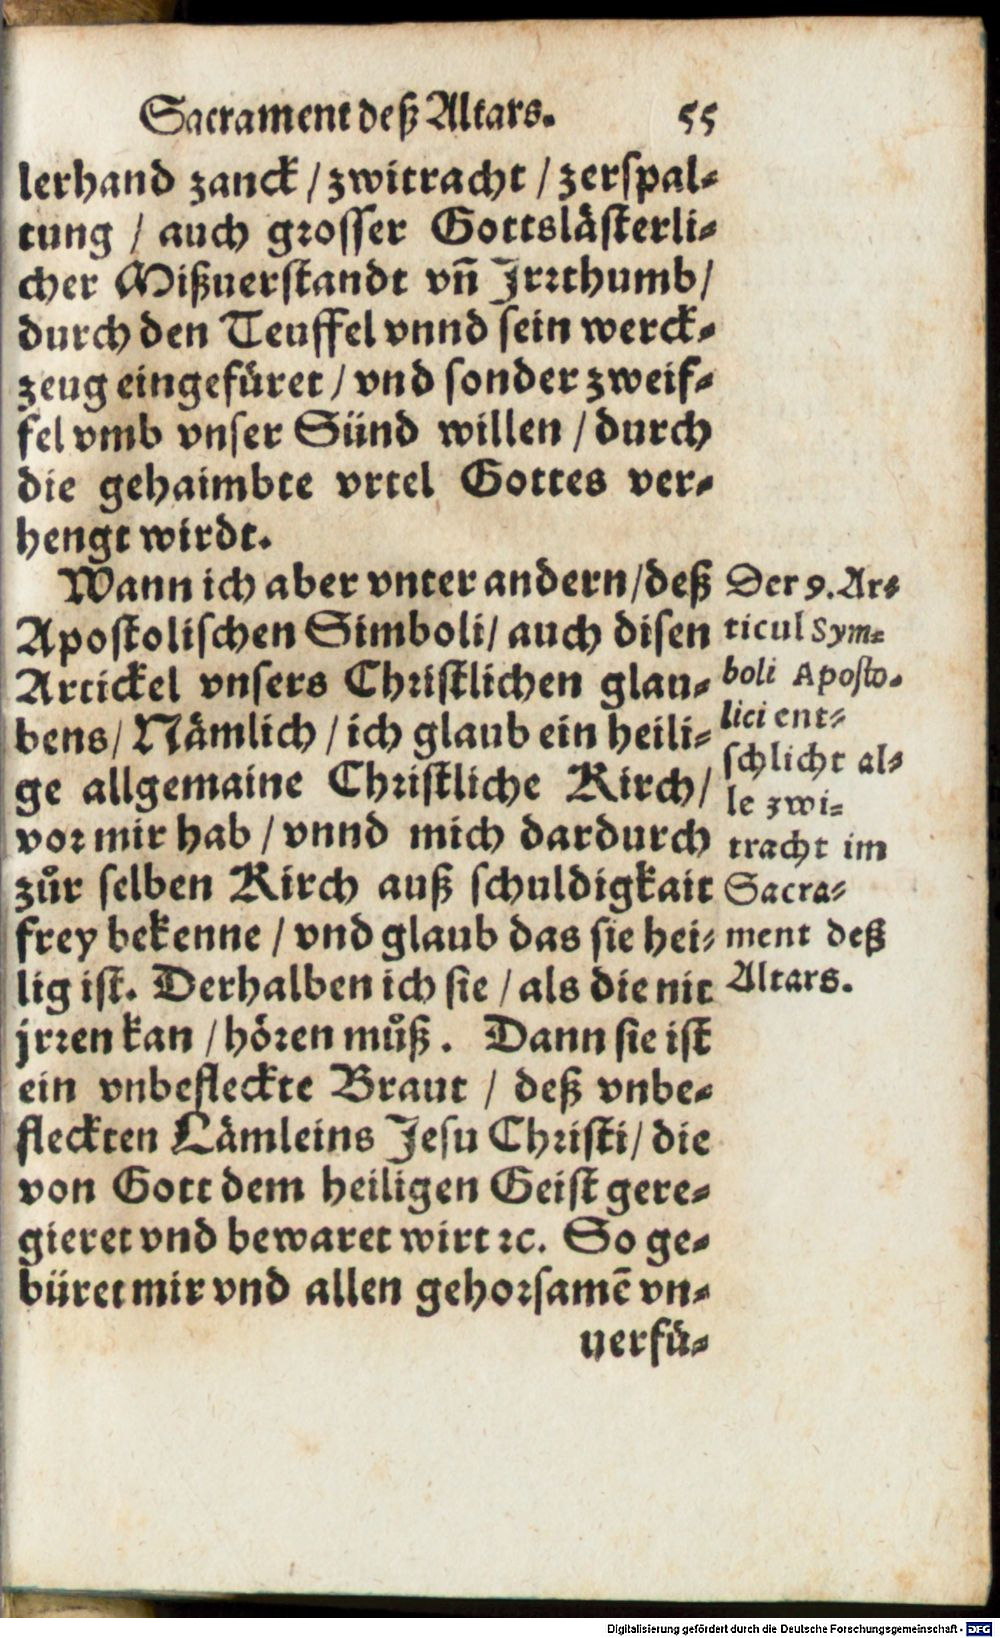 Sacrament deß Altars. 55
lerhand zanck / zwitracht / zerspal-
tung / auch grosser Gottslästerli-
cher Mißuerstandt vñ Jrrthumb/
durch den Teuffel vnnd sein werck-
zeug eingefüret / vnd sonder zweif-
fel vmb vnser Sünd willen / durch
die gehaimbte vrtel Gottes ver-
hengt wirdt.
Wann ich aber vnter andern/deß
Apostolischen Simboli/ auch disen
Artickel vnsers Christlichen glau-
bens/ Nämlich / ich glaub ein heili-
ge allgemaine Christliche Kirch/
vor mir hab / vnnd mich dardurch
zůr selben Kirch auß schuldigkait
frey bekenne / vnd glaub das sie hei-
lig ist. Derhalben ich sie / als die nit
jrren kan / hören můß. Dann sie ist
ein vnbefleckte Braut / deß vnbe-
fleckten Lämleins Jesu Christi/ die
von Gott dem heiligen Geist gere-
gieret vnd bewaret wirt ꝛc. So ge-
büret mir vnd allen gehorsamē vn-
uerfü-
Der 9. Ar-
ticul Sym-
boli Aposto-
lici ent-
schlicht al-
le zwi-
tracht im
Sacra-
ment deß
Altars.
Digitalisierung gefördert durch die Deutsche Forschungsgemeinschaft - DFG